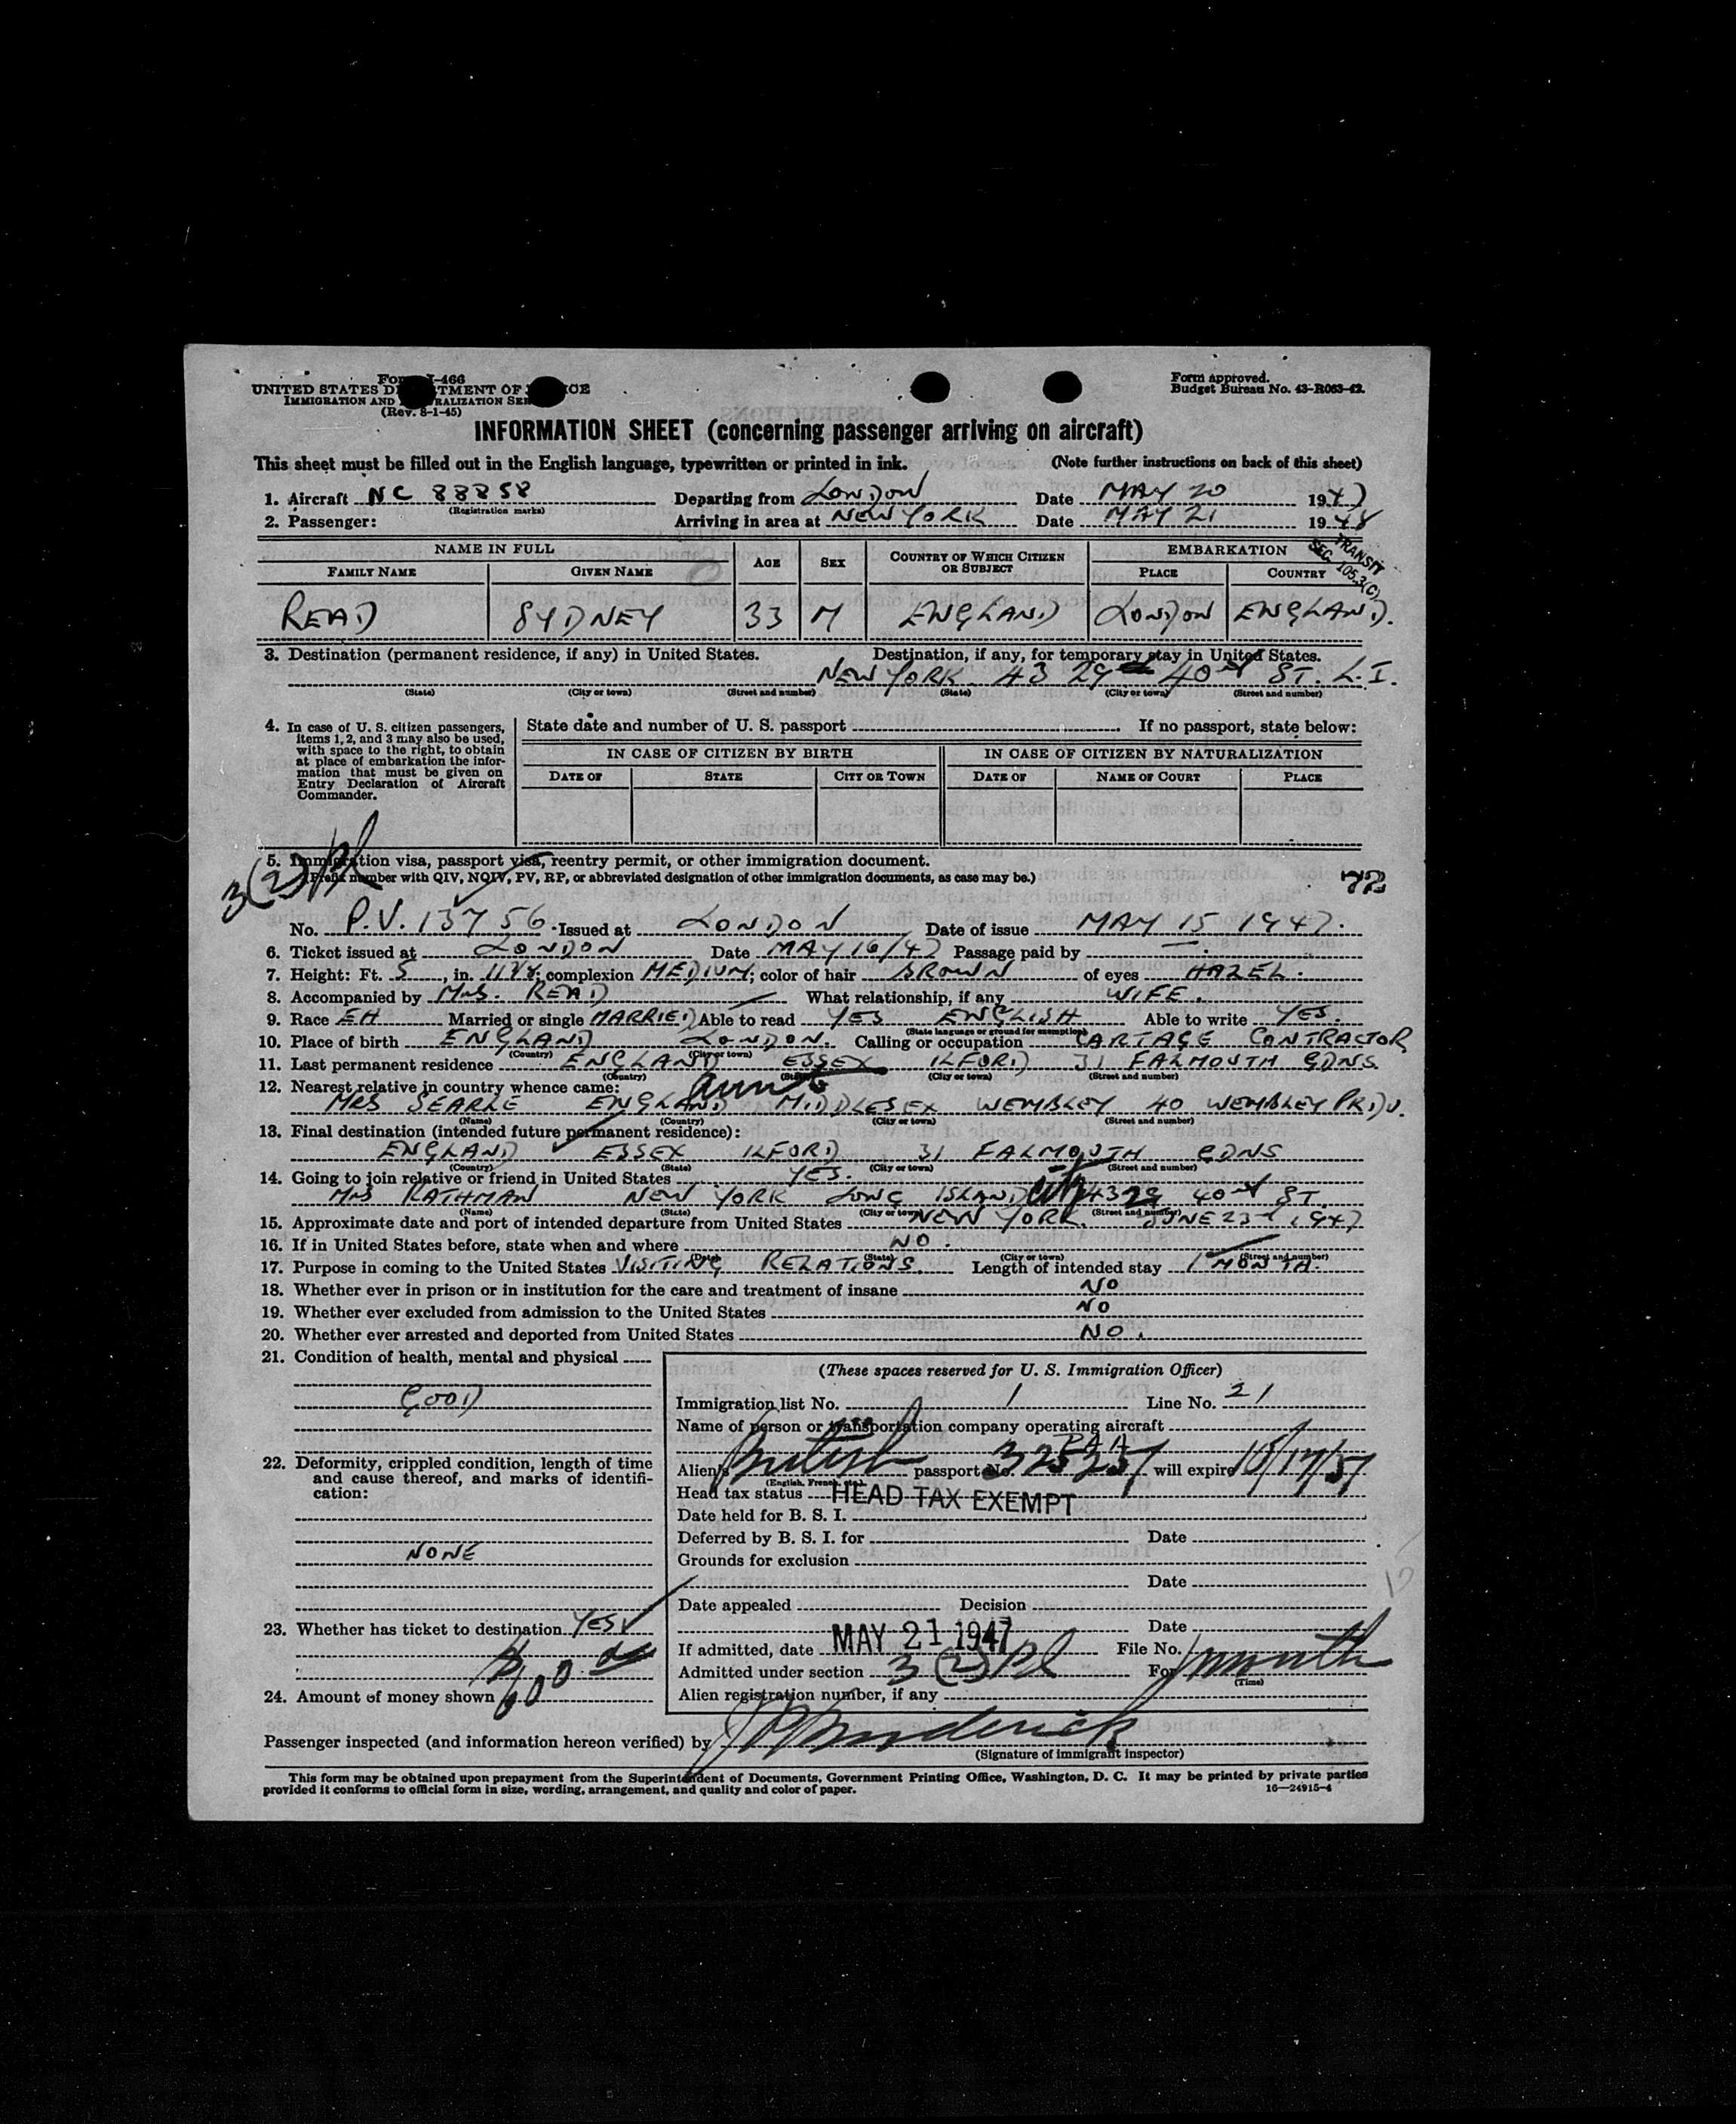 Form I-466
UNITED STATES DEPARTMENT OF JUSTICE
IMMIGRATION AND NATURALIZATION SERVICE
(Rev. 8-1-45)
Form approved.
Budget Bureau No. 43-R063-42.
INFORMATION SHEET (concerning passenger arriving on aircraft)
This sheet must be filled out in the English language, typewritten or printed in ink. (Note further instructions on back of this sheet)
1. Aircraft NC 88858 Departing from LONDON Date MAY 20 1947
(Registration marks)
2. Passenger: Arriving in area at NEW YORK Date MAY 21 1948
TRANSIT
SEC. 105.3(C)
NAME IN FULL AGE SEX COUNTRY OF WHICH CITIZEN OR SUBJECT EMBARKATION
FAMILY NAME GIVEN NAME PLACE COUNTRY
READ SYDNEY 33 M ENGLAND LONDON ENGLAND.
3. Destination (permanent residence, if any) in United States. Destination, if any, for temporary stay in United States.
NEW YORK. 43 29 40 ST. L.I.
(State) (City or town) (Street and number) (State) (City or town) (Street and number)
4. In case of U. S. citizen passengers, items 1, 2, and 3 may also be used, with space to the right, to obtain at place of embarkation the information that must be given on Entry Declaration of Aircraft Commander.
State date and number of U. S. passport If no passport, state below:
IN CASE OF CITIZEN BY BIRTH IN CASE OF CITIZEN BY NATURALIZATION
DATE OF STATE CITY OR TOWN DATE OF NAME OF COURT PLACE
3(2)
5. Immigration visa, passport visa, reentry permit, or other immigration document.
(Prefix number with QIV, NQIV, PV, RP, or abbreviated designation of other immigration documents, as case may be.)
No. P.V. 13756 Issued at LONDON Date of issue MAY 15 1947.
6. Ticket issued at LONDON Date MAY 16/47 Passage paid by —.
7. Height: Ft. 5, in. 11; complexion MEDIUM; color of hair BROWN of eyes HAZEL.
8. Accompanied by MRS. READ What relationship, if any WIFE.
9. Race EH Married or single MARRIED Able to read YES ENGLISH Able to write YES.
(State language or ground for exemption)
10. Place of birth ENGLAND LONDON. Calling or occupation CARTAGE CONTRACTOR
(Country) (City or town)
11. Last permanent residence ENGLAND ESSEX ILFORD 31 FALMOUTH GDNS.
(Country) (State) (City or town) (Street and number)
12. Nearest relative in country whence came: aunt
MRS SEARLE ENGLAND MIDDLESEX WEMBLEY 40 WEMBLEY PK. DV.
(Name) (Country) (City or town) (Street and number)
13. Final destination (intended future permanent residence):
ENGLAND ESSEX ILFORD 31 FALMOUTH GDNS
(Country) (State) (City or town) (Street and number)
14. Going to join relative or friend in United States YES.
MRS RATHMAN NEW YORK LONG ISLAND City 4329 40 ST.
(Name) (State) (City or town) (Street and number)
15. Approximate date and port of intended departure from United States NEW YORK. JUNE 23 1947
16. If in United States before, state when and where NO.
(Date) (State) (City or town) (Street and number)
17. Purpose in coming to the United States VISITING RELATIONS. Length of intended stay 1 MONTH.
18. Whether ever in prison or in institution for the care and treatment of insane NO
19. Whether ever excluded from admission to the United States NO
20. Whether ever arrested and deported from United States NO.
21. Condition of health, mental and physical
GOOD
22. Deformity, crippled condition, length of time and cause thereof, and marks of identification:
NONE
23. Whether has ticket to destination YES
24. Amount of money shown $600
(These spaces reserved for U. S. Immigration Officer)
Immigration list No. 1 Line No. 21
Name of person or transportation company operating aircraft
PAA
Alien's British passport No. 325257 will expire 10/17/51
(English, French, etc.)
Head tax status HEAD TAX EXEMPT
Date held for B. S. I.
Deferred by B. S. I. for Date
Grounds for exclusion
Date
Date appealed Decision
Date
If admitted, date MAY 21 1947 File No.
Admitted under section 3(2) For 1 month
(Time)
Alien registration number, if any
Passenger inspected (and information hereon verified) by
(Signature of immigrant inspector)
This form may be obtained upon prepayment from the Superintendent of Documents, Government Printing Office, Washington, D. C. It may be printed by private parties
provided it conforms to official form in size, wording, arrangement, and quality and color of paper. 16—24915-4